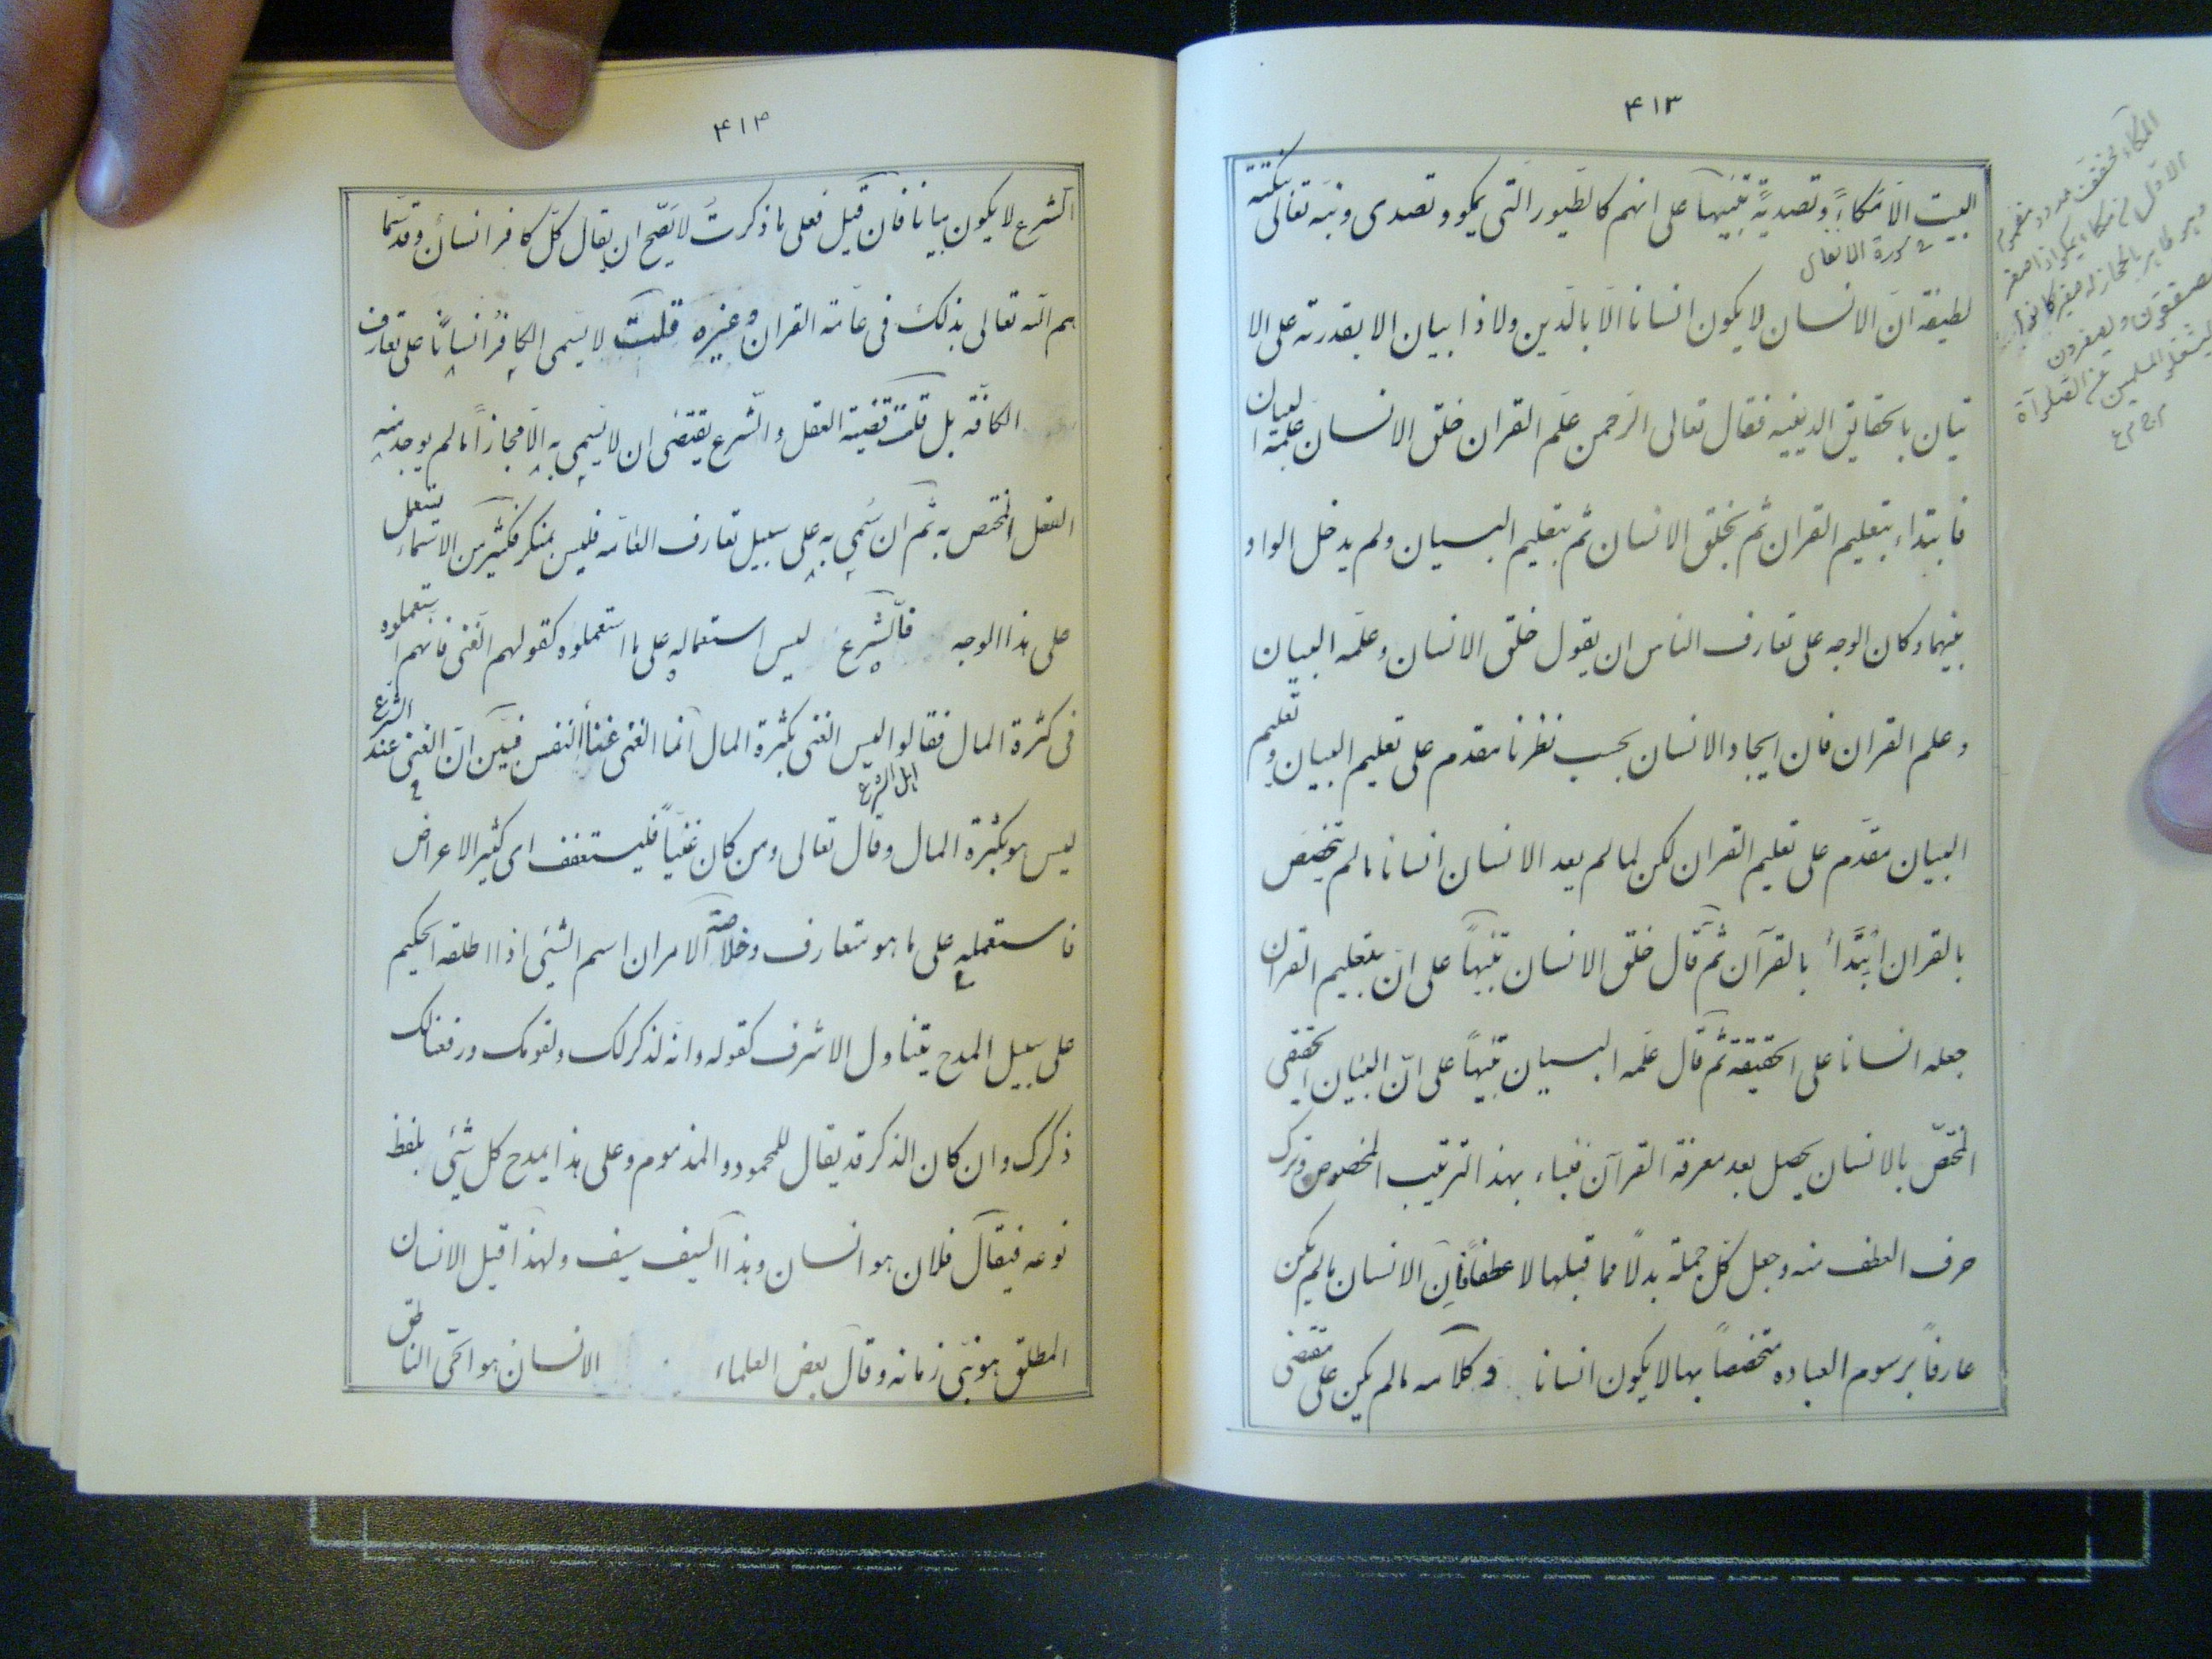 ۴۱۳
البیت الا مکاءً وتصدیةً تنبیهاً علی انهم کالطیور الّتی یمکو وتصدی ونبّه تعالی بنکتة
فی سورة الانفال
لطیفه انّ الانسان لایکون انسانا الّا بالدین ولا ذا بیان الا بقدرته علی الا
تیان بالحقایق الدینیه فقال تعالی الرّحمن علّم القران خلق الانسان علّمه البیان
فابتداء بتعلیم القران ثم بخلق الانسان ثم بتعلیم البیان ولم یدخل الواو
بینهما وکان الوجه علی تعارف الناس ان یقول خلق الانسان وعلّمه البیان
وعلم القران فان ایجاد الانسان بحسب نظرنا مقدم علی تعلیم البیان وتعلیم
البیان مقدّم علی تعلیم القران لکن لما لم یعد الانسان انسانا مالم یتخصّص
بالقران ابتدأ بالقرآن ثم قال خلق الانسان تنبیهاً علی انّ بتعلیم القران
جعله انسانا علی الحقیقة ثم قال علّمه البیان تنبیهاً علی انّ البیان الحقیقی
المختصّ بالانسان یحصل بعد معرفة القرآن فنبّاء بهذ الترتیب المخصوص وترک
حرف العطف منه وجعل کلّ جملة بدلاً مما قبلها لا عطفاً فانّ الانسان مالم یکن
عارفاً برسوم العباده متخصصاً بها لایکون انسانا وکلامه مالم یکن علی مقتضی
المکاء مخفّفة ممدود مضموم
الاوّل من مکاء یمکو اذا صفر
یصفقون ویصفرون
المسلمین عن الصلوة
۴۱۴
الشرع لایکون بیانا فان قیل فعلی ما ذکرت لا یصّح ان یقال کلّ کافر انسان وقد سمّا
هم الله تعالی بذلک فی عامّة القران وغیره قلت لا یسّمی الکافر انساناً علی تعارف
الکافّه بل قلت قضیة العقل والشّرع یقتضی ان لا یسمی به الّا مجازاً مالم یوجد منه
العقل المختص به ثم ان سمّی به علی سبیل تعارف العامّه فلیس بمنکر فکثیر من الاسماء یستعمل
علی هذا الوجه فالشّرع لیس استعماله علی ما استعملوه کقولهم الغنی فانهم استعملوه
فی کثرة المال فقالوا لیس الغنی بکثرة المال انما الغنی غنأ النفس فبیّن انّ الغنی عند الشرع
اهل الشرع
لیس هو بکثرة المال وقال تعالی ومن کان غنیاً فلیستعفف ای کثیر الاعراض
فاستعمله علی ما هو متعارف وخلاصة الامر ان اسم الشئی اذا اطلقه الحکیم
علی سبیل المدح یتناول الاشرف کقوله وانه لذکر لک ولقومک ورفعنا لک
ذکرک وان کان الذکر قد یقال للمحمود والمذموم وعلی هذا یمدح کل شئی بلفظ
نوعه فیقال فلان هو انسان وهذا السیف سیف ولهذا قیل الانسان
المطلق هو نبی زمانه وقال بعض العلماء الانسان هو الحّی الناطق